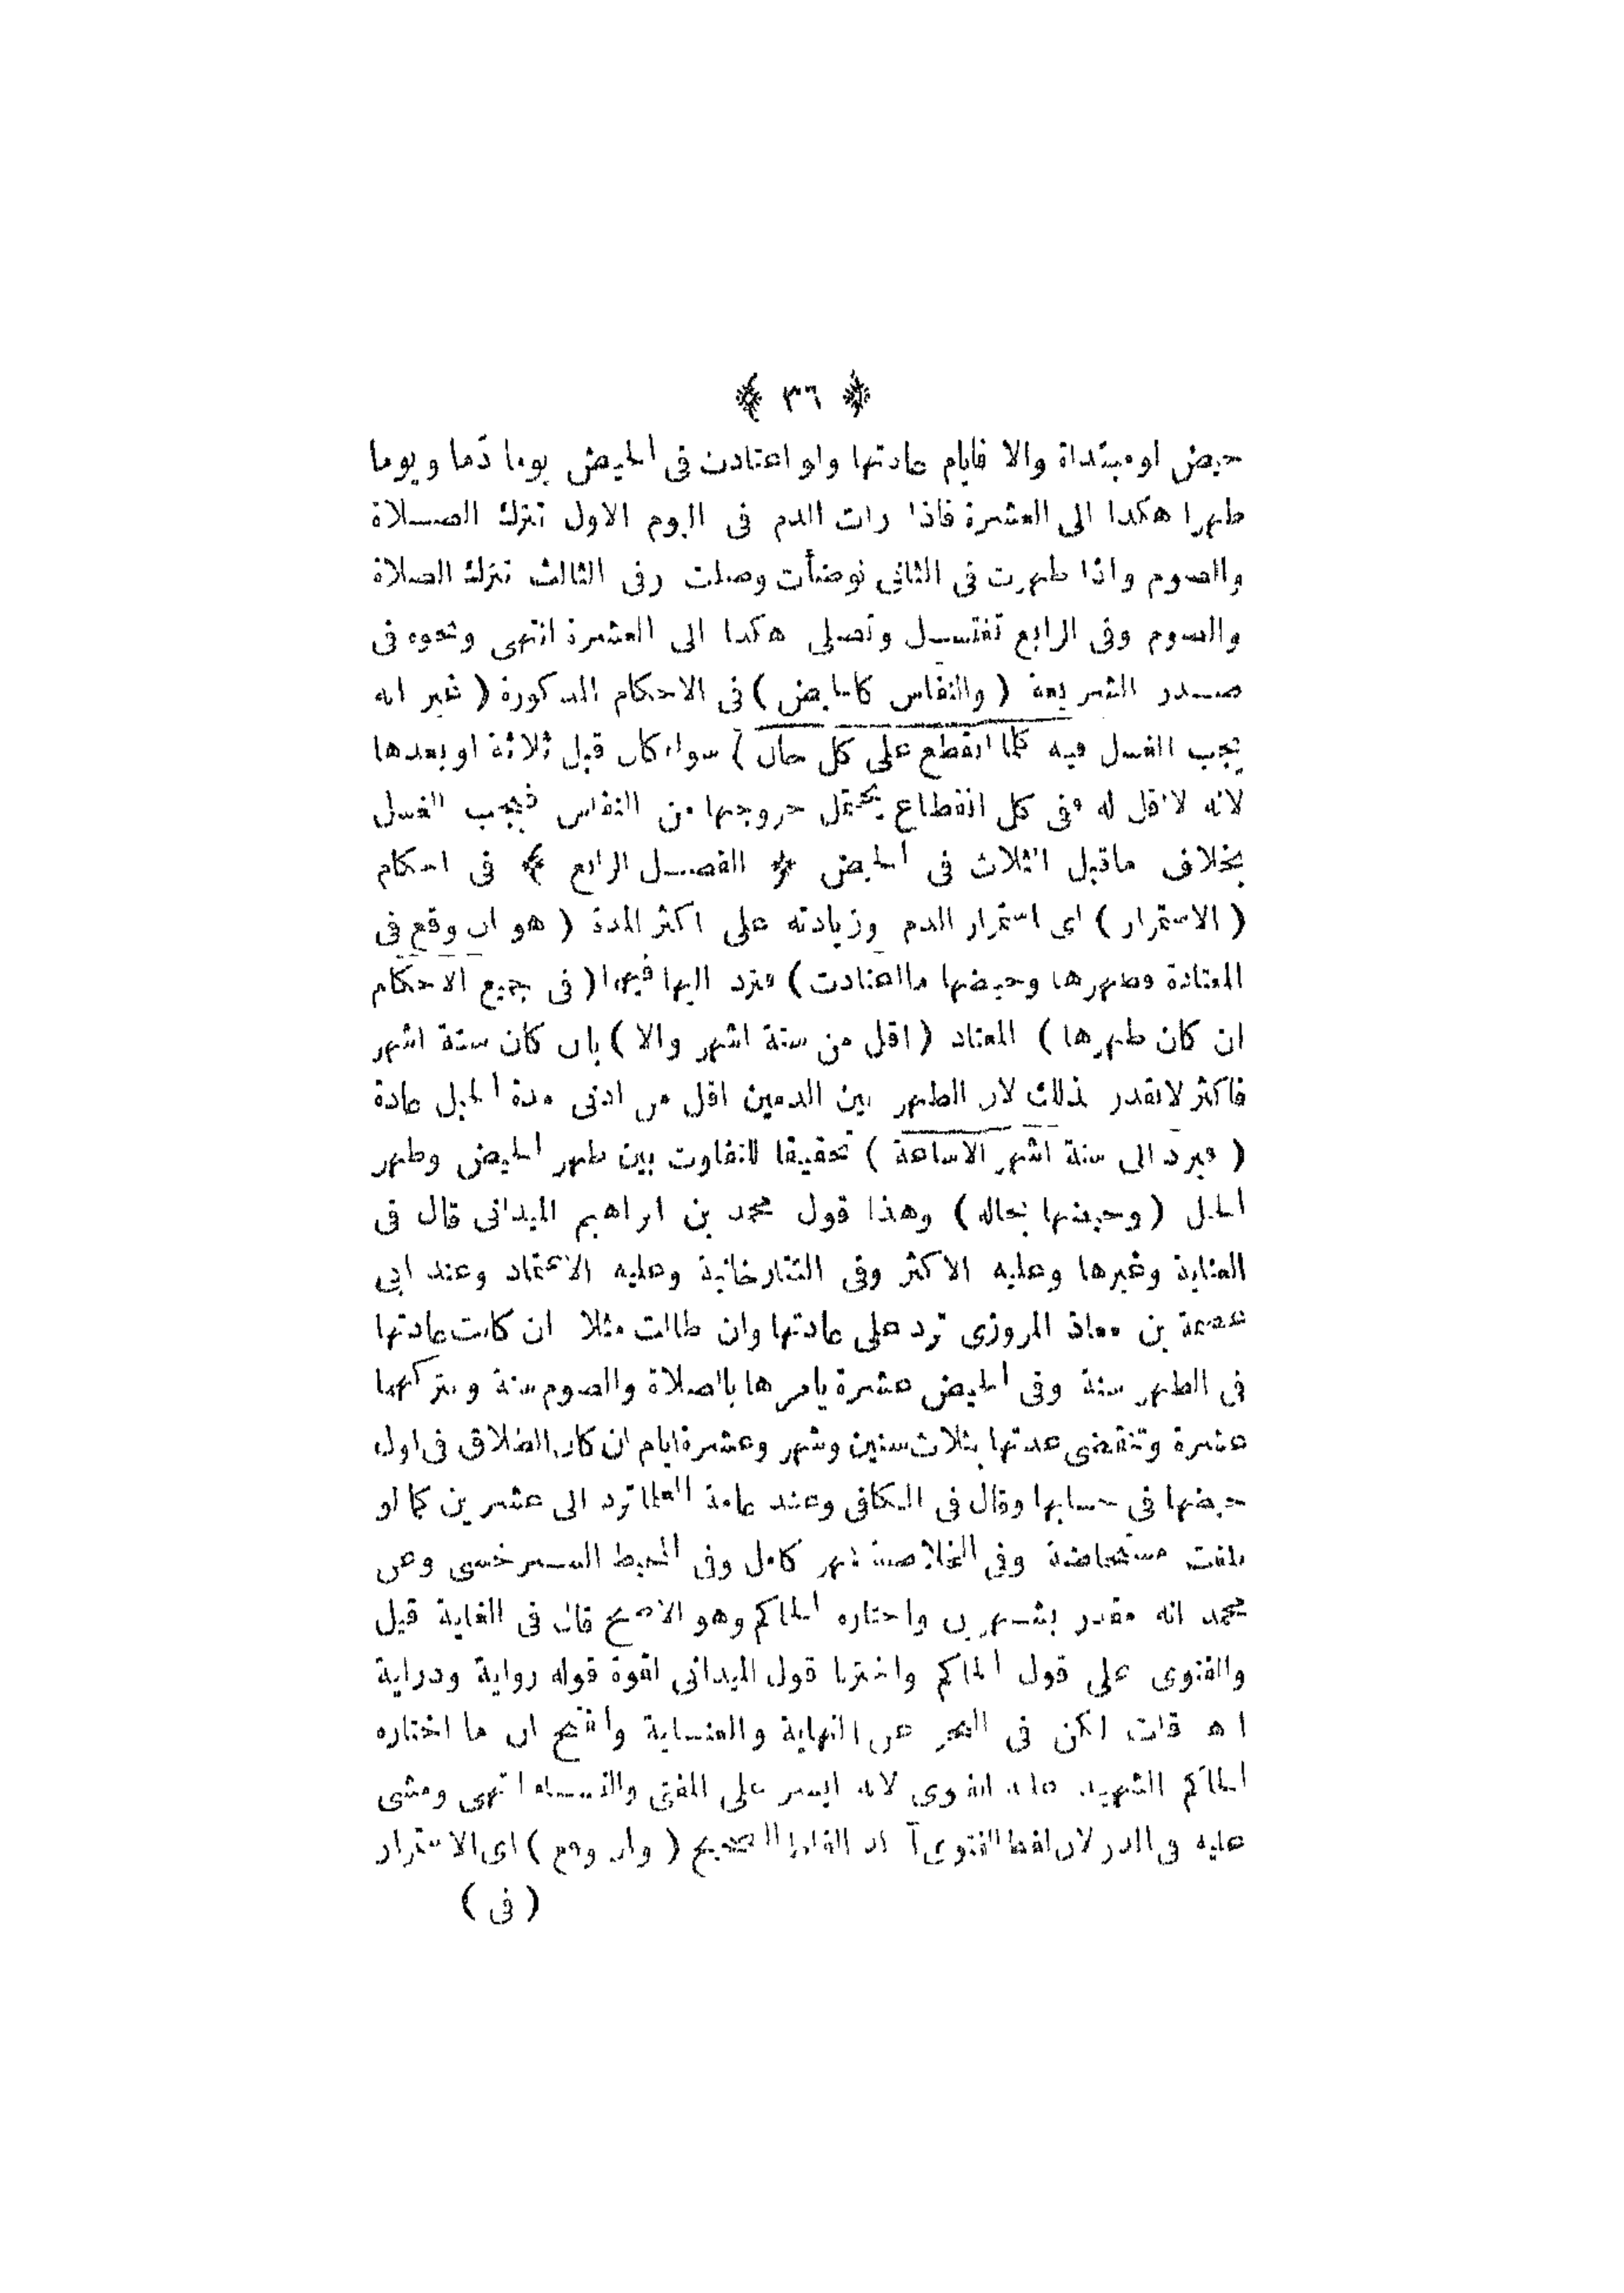 ﴿ ٣٦ ﴾
حيض او مبتدأة والا فايام عادتها ولو اعتادت فى الحيض يوما دما ويوما
طهرا هكذا الى العشرة فاذا رأت الدم فى اليوم الاول تترك الصلاة
والصوم واذا طهرت فى الثانى توضأت وصلت وفى الثالث تترك الصلاة
والصوم وفى الرابع تغتسل وتصلى هكذا الى العشرة انتهى ونحوه فى
صدر الشريعة ( والنفاس كالحيض ) فى الاحكام المذكورة ( غير انه
يجب الغسل فيه كلما انقطع على كل حال ) سواء كان قبل ثلاثة او بعدها
لانه لا اقل له ففى كل انقطاع يحتمل خروجها من النفاس فيجب الغسل
بخلاف ماقبل الثلاث فى الحيض ﴿ الفصل الرابع ﴾ فى احكام
( الاستمرار ) اى استمرار الدم وزيادته على اكثر المدة ( هو ان وقع فى
المعتادة فطهرها وحيضها مااعتادت ) فترد اليها فيهما ( فى جميع الاحكام
ان كان طهرها ) المعتاد ( اقل من ستة اشهر والا ) بان كان ستة اشهر
فاكثر لايقدر بذلك لان الطهر بين الدمين اقل من ادنى مدة الحبل عادة
( فيرد الى ستة اشهر الاساعة ) تحقيقا للتفاوت بين طهر الحيض وطهر
الحبل ( وحيضها بحاله ) وهذا قول محمد بن ابراهيم الميدانى قال فى
العناية وغيرها وعليه الاكثر وفى التتارخانية وعليه الاعتماد وعند ابى
عصمة بن معاذ المروزى ترد على عادتها وان طالت مثلا ان كانت عادتها
فى الطهر سنة وفى الحيض عشرة يامرها بالصلاة والصوم سنة وبتركهما
عشرة وتنقضى عدتها بثلاث سنين وشهر وعشرة ايام ان كان الطلاق فى اول
حيضها فى حسابها وقال فى الكافى وعند عامة العلما ترد الى عشرين كما لو
بلغت مستحاضة وفى الخلاصة شهر كامل وفى المحيط السرخسى وعن
محمد انه مقدر بشهرين واختاره الحاكم وهو الاصح قال فى الغاية قيل
والفتوى على قول الحاكم واخترنا قول الميدانى لقوة قوله رواية ودراية
اه قلت لكن فى البحر عن النهاية والعناية والفتح ان ما اختاره
الحاكم الشهيد عليه الفتوى لانه ايسر على المفتى والنساء انتهى ومشى
عليه فى الدر لان لفظ الفتوى آكد الفاظ التصحيح ( وان وقع ) اى الاستمرار
( فى )